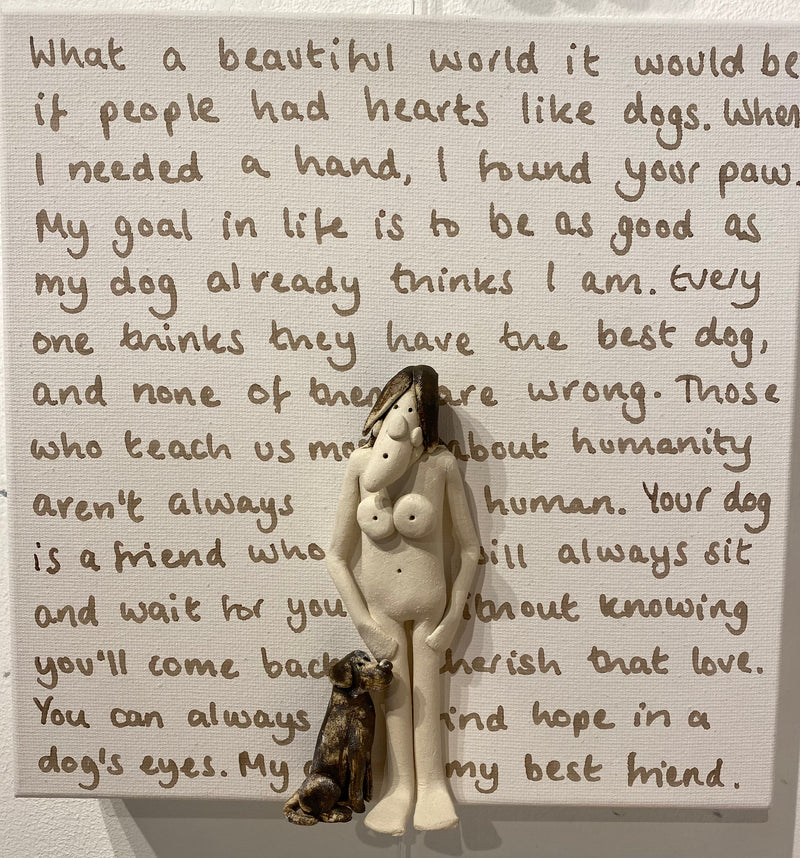 What a beautiful world it would be
if people had hearts like dogs. When
I needed a hand, I found your paw.
My goal in life is to be as good as
my dog already thinks I am. Every
one thinks they have the best dog,
and none of them are wrong. Those
who teach us mo about humanity
aren't always human. Your dog
is a friend who will always sit
and wait for you without knowing
you'll come back cherish that love.
You can always find hope in a
dog's eyes. My my best friend.